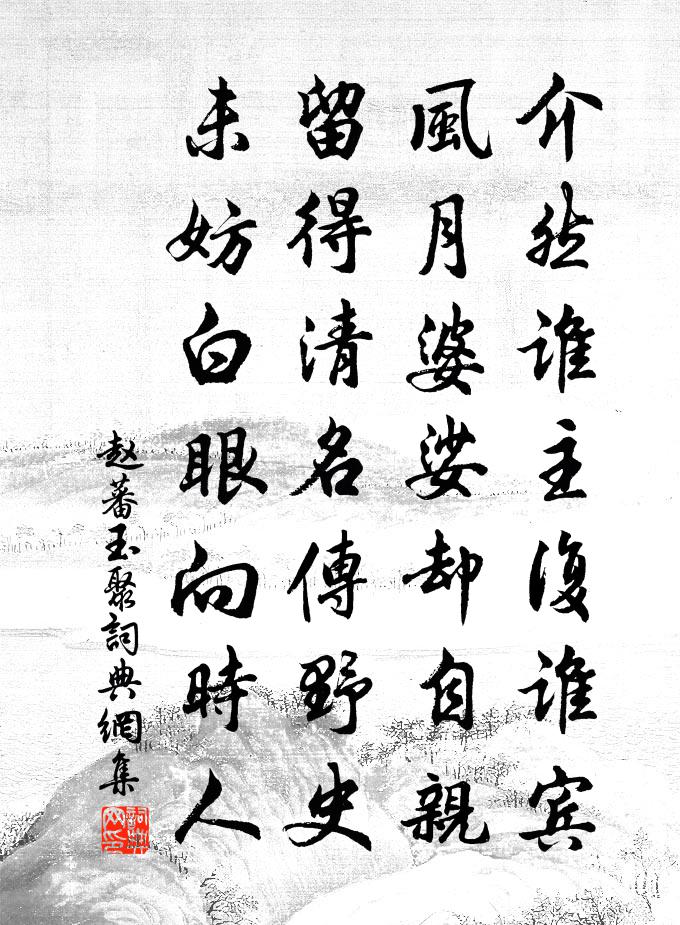 介然谁主復谁宾
風月婆娑却自親
留得清名傳野史
未妨白眼向時人
赵蕃玉聚詞典網集